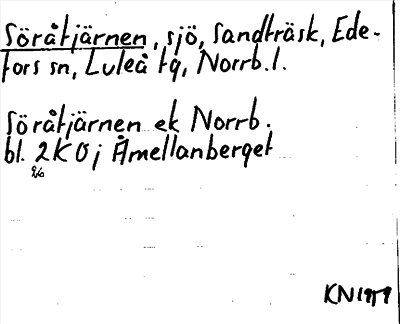 Söråtjärnen, sjö, Sandträsk, Ede-
fors sn, Luleå tg, Norrb.l.
Söråtjärnen ek Norrb.
bl. 2K 0j Åmellanberget
KN1959